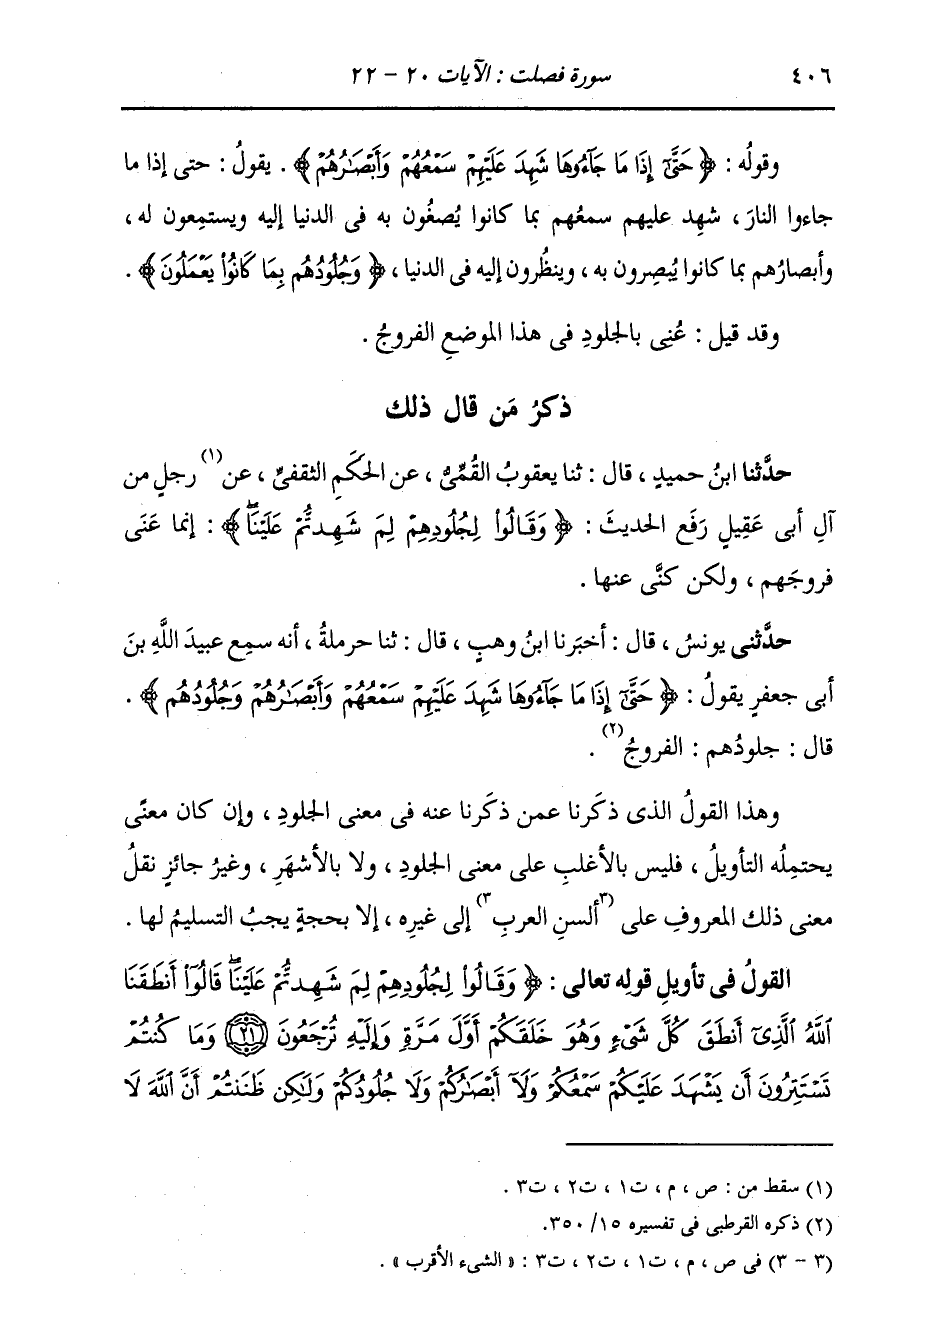 ٤٠٦ سورة فصلت : الآيات ٢٠ - ٢٢
وقولُه : ﴿ حَتَّىٰٓ إِذَا مَا جَآءُوهَا شَهِدَ عَلَيْهِمْ سَمْعُهُمْ وَأَبْصَٰرُهُمْ ﴾ . يقولُ : حتى إذا ما
جاءوا النارَ ، شهِد عليهم سمعُهم بما كانوا يُصغُون به فى الدنيا إليه ويستمِعون له ،
وأبصارُهم بما كانوا يُبصِرون به ، وينظُرون إليه فى الدنيا ، ﴿ وَجُلُودُهُم بِمَا كَانُوا۟ يَعْمَلُونَ ﴾ .
وقد قيل : عُنِى بالجلودِ فى هذا الموضعِ الفروجُ .
ذكرُ مَن قال ذلك
حدَّثنا ابنُ حميدٍ ، قال : ثنا يعقوبُ القُمِّىُّ ، عن الحكَمِ الثقفىِّ ، عن(١) رجلٍ من
آلِ أبى عَقِيلٍ رَفَع الحديثَ : ﴿ وَقَالُوا۟ لِجُلُودِهِمْ لِمَ شَهِدتُّمْ عَلَيْنَا ۖ ﴾ : إنما عَنَى
فروجَهم ، ولكن كنَّى عنها .
حدَّثنى يونسُ ، قال : أخبَرنا ابنُ وهبٍ ، قال : ثنا حرملةُ ، أنه سمِع عبيدَ اللَّهِ بنَ
أبى جعفرٍ يقولُ : ﴿ حَتَّىٰٓ إِذَا مَا جَآءُوهَا شَهِدَ عَلَيْهِمْ سَمْعُهُمْ وَأَبْصَٰرُهُمْ وَجُلُودُهُم ﴾ .
قال : جلودُهم : الفروجُ(٢) .
وهذا القولُ الذى ذكَرنا عمن ذكَرنا عنه فى معنى الجلودِ ، وإن كان معنًى
يحتمِلُه التأويلُ ، فليس بالأغلبِ على معنى الجلودِ ، ولا بالأشهَرِ ، وغيرُ جائزٍ نقلُ
معنى ذلك المعروفِ على (٣ألسنِ العربِ٣) إلى غيرِه ، إلا بحجةٍ يجبُ التسليمُ لها .
القولُ فى تأويلِ قولِه تعالى : ﴿ وَقَالُوا۟ لِجُلُودِهِمْ لِمَ شَهِدتُّمْ عَلَيْنَا ۖ قَالُوٓا۟ أَنطَقَنَا
ٱللَّهُ ٱلَّذِىٓ أَنطَقَ كُلَّ شَىْءٍ وَهُوَ خَلَقَكُمْ أَوَّلَ مَرَّةٍ وَإِلَيْهِ تُرْجَعُونَ ﴿٢١﴾ وَمَا كُنتُمْ
تَسْتَتِرُونَ أَن يَشْهَدَ عَلَيْكُمْ سَمْعُكُمْ وَلَآ أَبْصَٰرُكُمْ وَلَا جُلُودُكُمْ وَلَٰكِن ظَنَنتُمْ أَنَّ ٱللَّهَ لَا
(١) سقط من : ص ، م ، ت١ ، ت٢ ، ت٣ .
(٢) ذكره القرطبى فى تفسيره ١٥/ ٣٥٠.
(٣ - ٣) فى ص ، م ، ت١ ، ت٢ ، ت٣ : « الشىء الأقرب » .